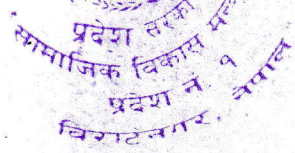 प्रदेश सरका
सामाजिक विकास मन्त्
प्रदेश नं. १
विराटनगर, नेपाल